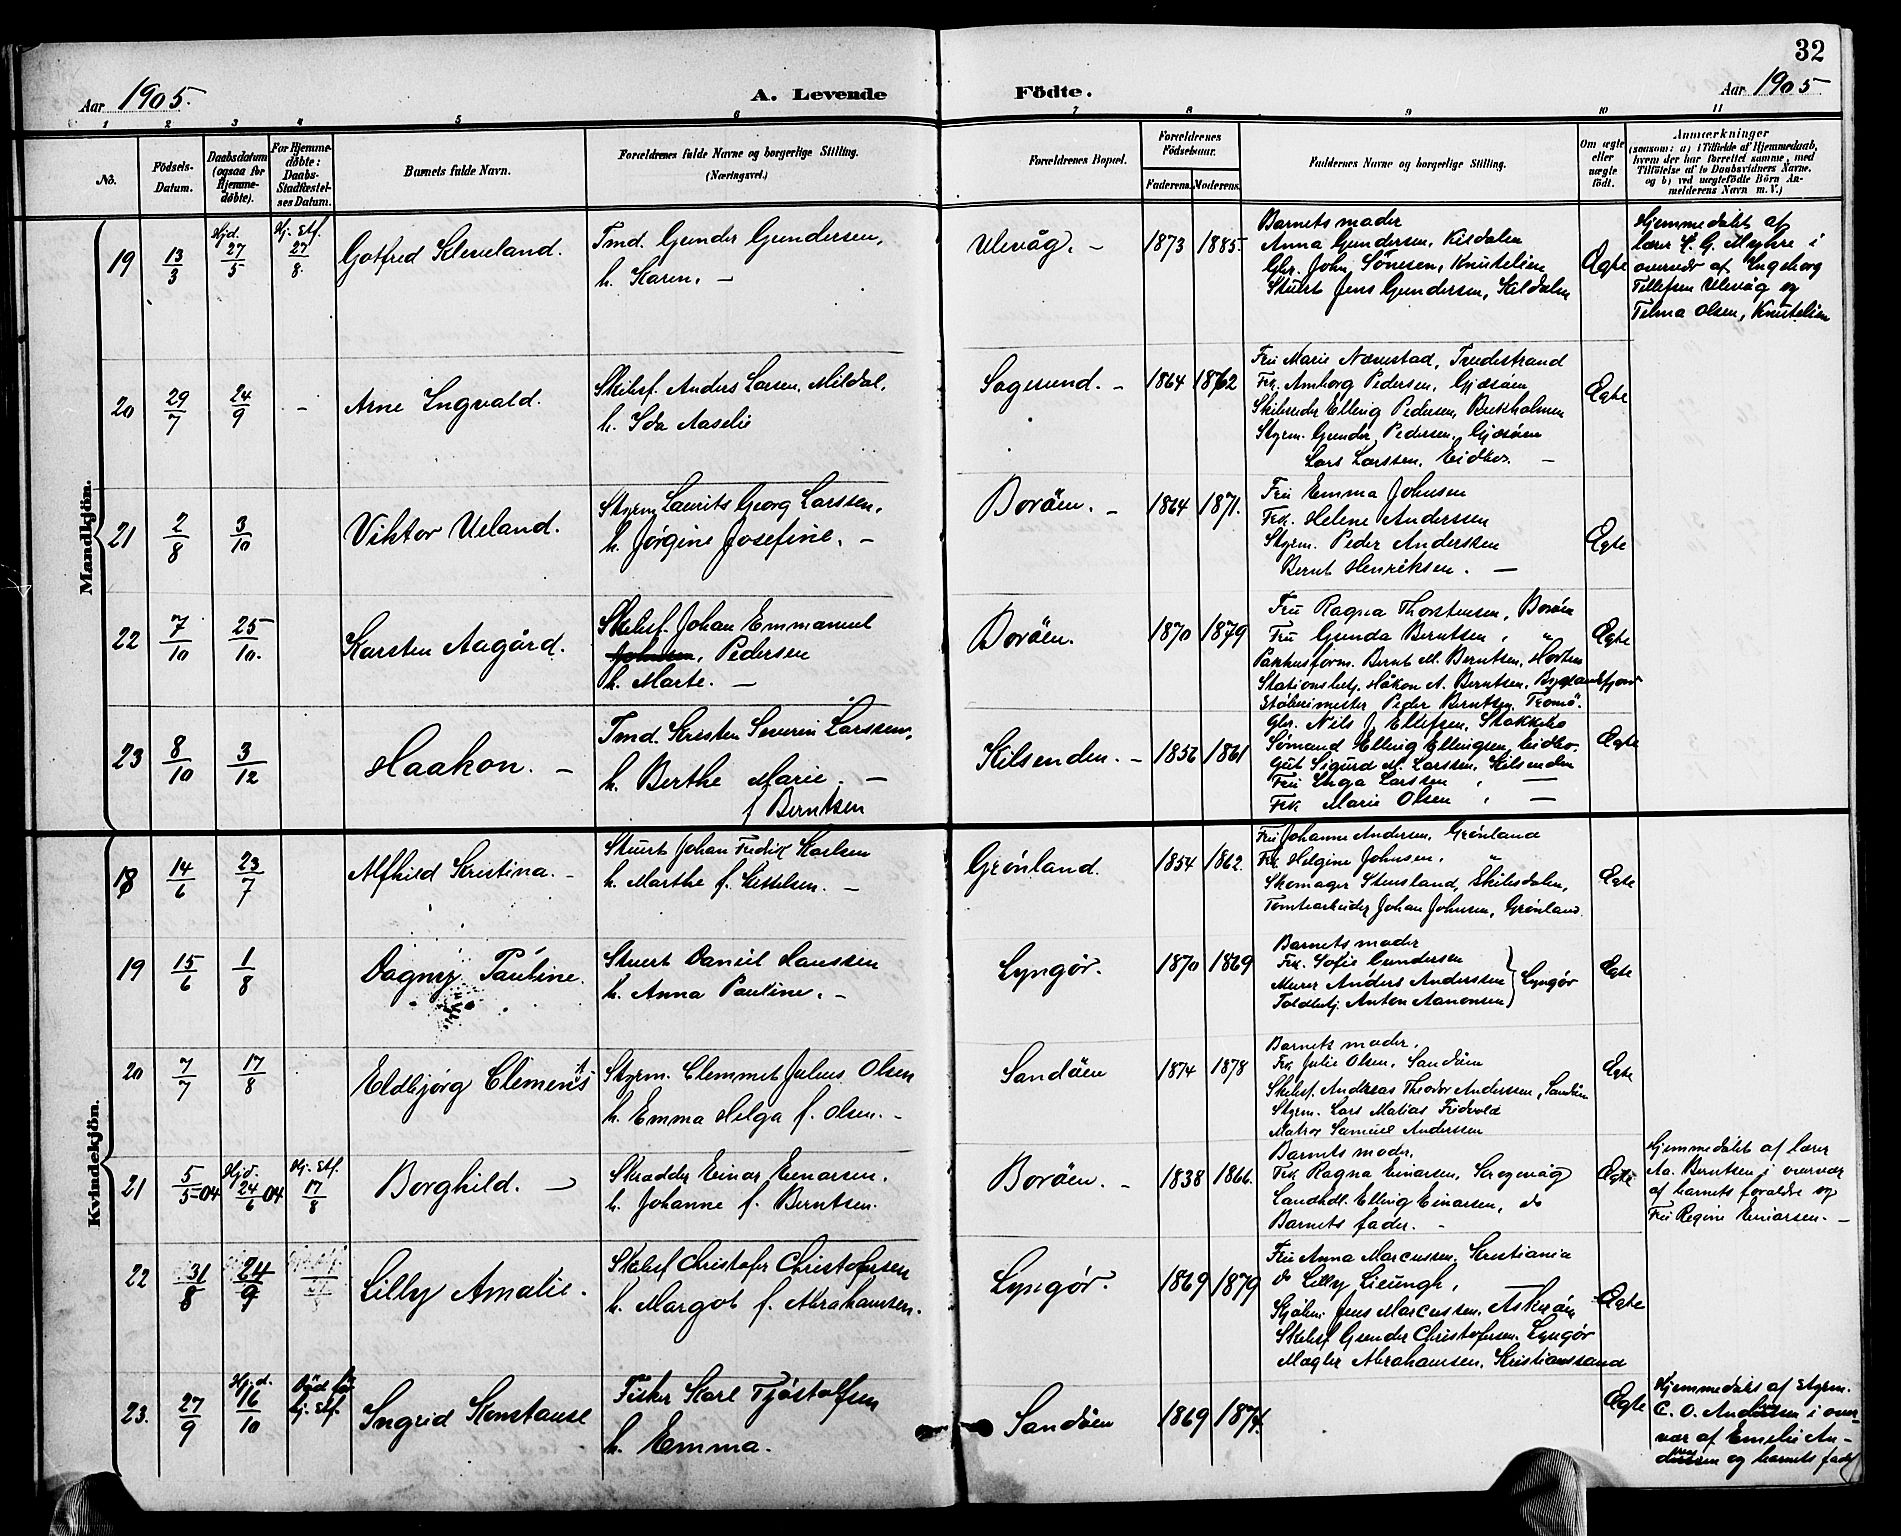 32
Aar 1905.
A. Levende
Födte.
Aar 1905
1 2 3 4 5 6 7 8 9 10 11
No.
Födsels-
Datum.
Daabsdatum
(ogsaa for
Hjemme-
döbte).
For Hjemme-
döbte:
Daabs-
Stadfæstel-
ses Datum.
Barnets fulde Navn.
Forældrenes fulde Navne og borgerlige Stilling.
(Næringsvei.)
Forældrenes Bopæl.
Forældrenes
Födselsaar.
Faderens. Moderens.
Faddernes Navne og borgerlige Stilling.
Om ægte
eller
uægte
födt.
Anmærkninger
(saasom: a) i Tilfælde af Hjemmedaab,
hvem der har forrettet samme, med
Tilföielse af to Daabsvidners Navne,
og b) ved uægtefödte Börn An-
melderens Navn m. V.)
Mandkjön.
19 13/3 Hjd. 27/5 Hj. Stf. 27/8. Gotfred Kleveland.
Tmd. Gunder Gundersen,
h. Karen. —
Ulevåg. — 1873 1885.
Barnets moder
Anna Gundersen, Kildalen
Gbr. John Sønesen, Knutelien
Stuert Jens Gundersen, Kildalen
Ægte
Hjemmedøbt af
lærer S. G. Myhre i
overvær af Ingeborg
Tellefsen Ulevåg og
Telma Olsen, Knutelien
20 29/7 24/9 - Arne Ingvald.
Skibsf. Anders Larsen, Mildal,
h. Ida Aaselie
Sagesund. — 1864 1862
Fru Marie Næsestad, Tvedestrand
Frk. Amborg Pedersen, Gjøsøen
Skibsreder Elling Pedersen, Buckholmen
Styrm. Gunder Pedersen, Gjøsøen
Lars Larssen, Eidbo. —
Ægte
21 2/8 3/10 Viktor Ueland.
Styrm Laurits Georg Larssen,
h. Jørgine Josefine. —
Borøen. — 1864 1871.
Fru Emma Johnsen
Frk. Helene Anderssen
Styrm. Peder Anderssen
Bernt Henriksen. —
Ægte
22 7/10 25/10. Karsten Aagård.
Skibsf. Johan Emmanuel
Johnsen, Pedersen
h. Marte. —
Borøen. 1870 1879
Fru Ragna Thorstensen, Borøen
Fru Gunda Berntsen, "
Pakhusform. Bernt M. Berntsen, Horten
Stationsbetj. Håkon A. Berntsen, Byglandsfjord
Støberimester Peder Berntsen, Tromø.
Ægte
23 8/10 3/12 Haakon. —
Tmd. Kristen Severin Larssen,
h. Berthe Marie. —
f Berntsen
Kilsenden. — 1856 1861
Gbr. Nils J. Ellefsen, Stokkebo
Sømand Elling Ellingsen, Eidbo.
Gut Sigurd M. Larssen, Kilsenden
Fru Inga Larssen, —
Frk Marie Olsen, —
Ægte
Kvindekjön.
18 14/6 23/7 Alfhild Kristina. —
Stuert Johan Fredik Karlsen
h. Marthe f. Kittelsen. —
Grønland. 1854 1862.
Fru Johanne Andersen, Grønland
Frk. Helgine Johnsen, "
Skomager Stensland, Skibsdalen,
Tomtearbeider Johan Johnsen, Grønland.
Ægte
19 15/6 1/8 Dagny Pauline.
Stuert Daniel Hanssen
h. Anna Pauline. —
Lyngør. 1870 1869
Barnets moder
Frk. Sofie Gundersen
Murer Anders Anderssen
Toldbetj. Anton Aanonsen
Lyngør
Ægte
20 7/7 17/8 Eldbjørg Clements
Styrm. Clemmet Julius Olsen
h. Emma Helga f. Olsen. —
Sandøen 1874 1878
Barnets moder,
Frk Julie Olsen, Sandøen
Skibsf. Andreas Theodor Anderssen, Sandøen
Styrm. Lars Matias Fidvold
Matros Samuel Anderssen
Ægte
21 5/5-04 Hjd. 24/6 04 Hj. Stf. 17/8 Borghild. —
Skrædder Einar Einarsen.
h. Johanne f. Berntsen.
Borøen. — 1838 1866.
Barnets moder,
Frk Ragna Einarsen, Sergevåg
Landhdl. Elling Einarsen, do
Barnets fader. —
Ægte
Hjemmedøbt af lærer
Aa. Berntsen i overvær
af barnets forældre og
Fru Regine Einarsen. —
22 31/8 24/9 Lilly Amalie.
Skibsf Christofer Christofersen
h. Margot f. Abrahamsen.
Lyngør. 1869 1879
Fru Anna Marcussen, Kristiania
do Lilly Lieungh,
Jens Marcussen, Askerøen
Skibsf Gunder Christofersen, Lyngør
Mægler Abrahamsen, Kristianssand
Ægte
23. 27/9 Hjd. 16/10 Død før hj. Stf. Ingrid Konstanse
Fisker Karl Tjøstolfsen
h. Emma.
Sandøen 1869 1874.
Ægte
Hjemmedøbt af Styrm.
C. O. Anderssen i over-
vær af Emelie An-
derssen og barnets fader